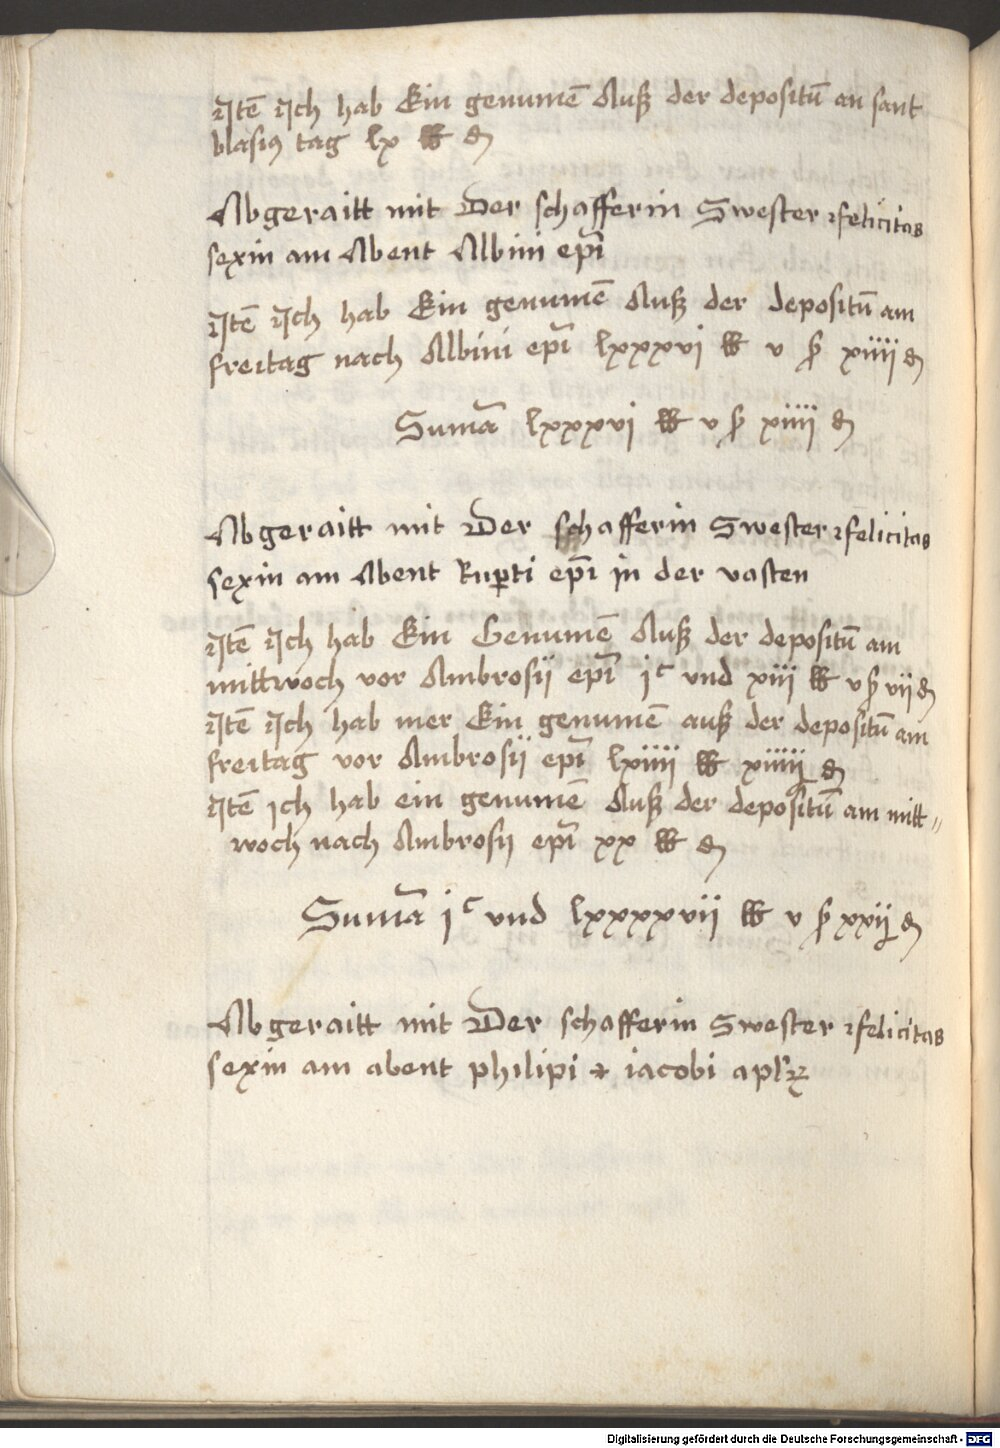 Jtē Jch hab Ein genumē Auß der depositū an sant
blasiꝰ tag lx ℔ ₰
Abgeraitt mit Der schafferin Swester felicitas
sexin am Abent Albini ep̄i
Jtē Jch hab Ein genumē Auß der depositū am
freitag nach Albini ep̄i lxxxvi ℔ v ß xiiii ₰
Sumā lxxxvi ℔ v ß xiiii ₰
Abgeraitt mit Der schafferin Swester felicitas
sexin am Abent Ruꝑti ep̄i in der vasten
Jtē Jch hab Ein Genumē Auß der depositū am
mittwoch vor Ambrosij ep̄i jᶜ vnd xiii ℔ v ß vij ₰
Jtē Jch hab mer Ein genumē auß der depositū am
freitag vor Ambrosij ep̄i lxiiii ℔ ₰
Jtē ich hab ein genumē Auß der depositū am mitt〃
woch nach Ambrosij ep̄i xx ℔ ₰
Sumā jᶜ vnd lxxxxvii ℔ v ß ₰
Abgeraitt mit Der schafferin Swester felicitas
sexin am abent philipi ⁊ iacobi aplꝝ
Digitalisierung gefördert durch die Deutsche Forschungsgemeinschaft - DFG